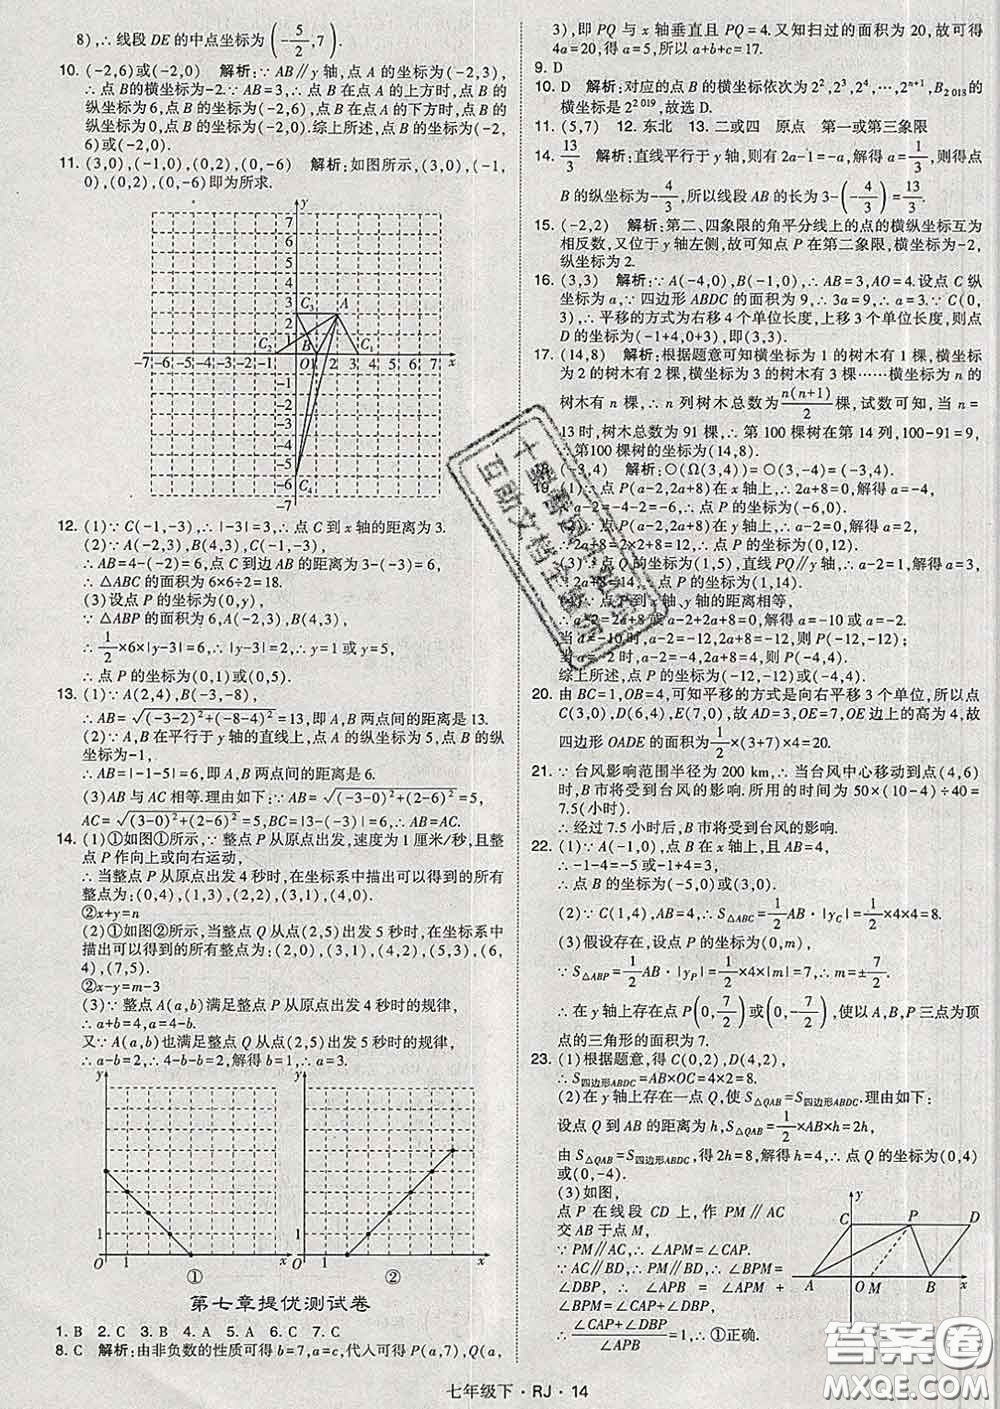 8),∴线段DE的中点坐标为(-5/2,7).
10. (-2,6)或(-2,0) 解析:∵AB∥y轴,点A的坐标为(-2,3),
∴点B的横坐标为-2.∵AB=3,∴点B在点A的上方时,点B的
纵坐标为6,点B的坐标为(-2,6);点B在点A的下方时,点B的
纵坐标为0,点B的坐标为(-2,0).综上所述,点B的坐标为(-2,
6)或(-2,0).
11. (3,0),(-1,0),(0,2),(0,-6) 解析:如图所示,(3,0),(-1,
0),(0,2),(0,-6)即为所求.
12. (1)∵C(-1,-3),∴|-3|=3,∴点C到x轴的距离为3.
(2)∵A(-2,3),B(4,3),C(-1,-3),
∴AB=4-(-2)=6,点C到边AB的距离为3-(-3)=6,
∴△ABC的面积为6×6÷2=18.
(3)设点P的坐标为(0,y),
∵△ABP的面积为6,A(-2,3),B(4,3),
∴1/2×6×|y-3|=6,∴|y-3|=2,∴y=1或y=5,
∴点P的坐标为(0,1)或(0,5).
13. (1)∵A(2,4),B(-3,-8),
∴AB=√(-3-2)²+(-8-4)²=13,即A,B两点间的距离是13.
(2)∵A,B在平行于y轴的直线上,点A的纵坐标为5,点B的纵
坐标为-1,
∴AB=|-1-5|=6,即A,B两点间的距离是6.
(3)AB与AC相等.理由如下:∵AB=√(-3-0)²+(2-6)²=5,
AC=√(3-0)²+(2-6)²=5,BC=|3-(-3)|=6,∴AB=AC.
14. (1)①如图①所示,∵整点P从原点出发,速度为1厘米/秒,且整
点P作向上或向右运动,
∴当整点P从原点出发4秒时,在坐标系中描出可以得到的所有
整点为:(0,4),(1,3),(2,2),(3,1),(4,0).
②x+y=n
(2)①如图②所示,当整点Q从点(2,5)出发5秒时,在坐标系中
描出可以得到的所有整点为:(2,0),(3,1),(4,2),(5,3),(6,
4),(7,5).
②x-y=m-3
(3)∵整点A(a,b)满足整点P从原点出发4秒时的规律,
∴a+b=4,a=4-b.
又∵A(a,b)满足整点Q从点(2,5)出发5秒时的规律,
∴a-b=2,∴4-b-b=2,解得b=1,∴a=3.
① ②
第七章提优测试卷
1. B 2. C 3. B 4. A 5. A 6. C 7. C
8. C 解析:由非负数的性质可得b=7,a=c,代入可得P(a,7),Q(a,
3),即PQ与x轴垂直且PQ=4.又知扫过的面积为20,故可得
4a=20,得a=5,所以a+b+c=17.
9. D
10. D 解析:对应的点B的横坐标依次为2²,2³,2⁴,…,2ⁿ⁺¹,B₂₀₁₈的
横坐标是2²⁰¹⁹,故选D.
11. (5,7) 12. 东北 13. 二或四 原点 第一或第三象限
14. 13/3 解析:直线平行于y轴,则有2a-1=-a,解得a=1/3,则得点
B的纵坐标为-4/3,所以线段AB的长为3-(-4/3)=13/3.
15. (-2,2) 解析:第二、四象限的角平分线上的点的横纵坐标互为
相反数,又位于y轴左侧,故可知点P在第二象限,横坐标为-2,
纵坐标为2.
16. (3,3) 解析:∵A(-4,0),B(-1,0),∴AB=3,AO=4.设点C纵
坐标为a,∵四边形ABDC的面积为9,∴3a=9,∴a=3.∵C(0,
3),∴平移的方式为右移4个单位长度,上移3个单位长度,∴点
D的坐标为(-1+4,0+3),即(3,3).
17. (14,8) 解析:根据题意可知横坐标为1的树木有1棵,横坐标
为2的树木有2棵,横坐标为3的树木有3棵……横坐标为n的
树木有n棵,∴n列树木总数为n(n+1)/2棵,试数可知,当n=
13时,树木总数为91棵,∴第100棵树在第14列,100-91=9,
∴第100棵树的坐标为(14,8).
18. (-3,4) 解析:○(Ω(3,4))=○(3,-4)=(-3,4).
19. (1)∵点P(a-2,2a+8)在x轴上,∴2a+8=0,解得a=-4,
∴a-2=-4-2=-6,∴点P的坐标为(-6,0).
(2)∵点P(a-2,2a+8)在y轴上,∴a-2=0,解得a=2,
∴2a+8=2×2+8=12,∴点P的坐标为(0,12).
(3)∵点Q的坐标为(1,5),直线PQ∥y轴,∴a-2=1,∴a=3,
∴2a+8=14,∴点P的坐标为(1,14).
(4)∵点P到x轴、y轴的距离相等,
∴a-2=2a+8或a-2+2a+8=0,∴a=-10或a=-2.
当a=-10时,a-2=-12,2a+8=-12,∴点P的坐标为(-12,-12);
当a=-2时,a-2=-4,2a+8=4,∴点P的坐标为(-4,4).
综上所述,点P的坐标为(-12,-12)或(-4,4).
20. 由BC=1,OB=4,可知平移的方式是向右平移3个单位,所以点
C(3,0),D(6,4),E(7,0),故AD=3,OE=7,OE边上的高为4,故
四边形OADE的面积为1/2×(3+7)×4=20.
21. ∵台风影响范围半径为200 km,∴当台风中心移动到点(4,6)
时,B市将受到台风的影响.所用的时间为50×(10-4)÷40=
7.5(小时).
∴经过7.5小时后,B市将受到台风的影响.
22. (1)∵A(-1,0),点B在x轴上,且AB=4,
∴-1-4=-5或-1+4=3,
∴点B的坐标为(-5,0)或(3,0).
(2)∵C(1,4),AB=4,∴S△ABC=1/2AB·|y_C|=1/2×4×4=8.
(3)假设存在,设点P的坐标为(0,m),
∵S△ABP=1/2AB·|y_P|=1/2×4×|m|=7,∴m=±7/2.
∴在y轴上存在点P(0,7/2)或(0,-7/2),使以A,B,P三点为顶
点的三角形的面积为7.
23. (1)根据题意,得C(0,2),D(4,2),
∴S四边形ABDC=AB×OC=4×2=8.
(2)在y轴上存在一点Q,使S△QAB=S四边形ABDC.理由如下:
设点Q到AB的距离为h,S△QAB=1/2×AB×h=2h,
由S△QAB=S四边形ABDC,得2h=8,解得h=4,∴点Q的坐标为(0,4)
或(0,-4).
(3)如图,
点P在线段CD上,作PM∥AC
交AB于点M,
∵PM∥AC,∴∠APM=∠CAP.
∵AC∥BD,∴PM∥BD,∴∠BPM=
∠DBP,∴∠APB=∠APM+∠BPM
=∠CAP+∠DBP,
∴(∠CAP+∠DBP)/∠APB=1,∴①正确.
七年级下·RJ·14
答案圈
MXQE.COM